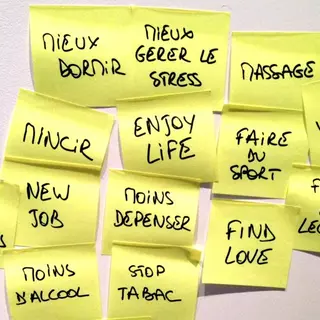 MIEUX
DORMIR
MIEUX
GERER LE
STRESS
MASSAGE
MINCIR
ENJOY
LIFE
FAIRE
DU
SPORT
NEW
JOB
MOINS
DEPENSER
FIND
LOVE
MOINS
D'ALCOOL
STOP
TABAC